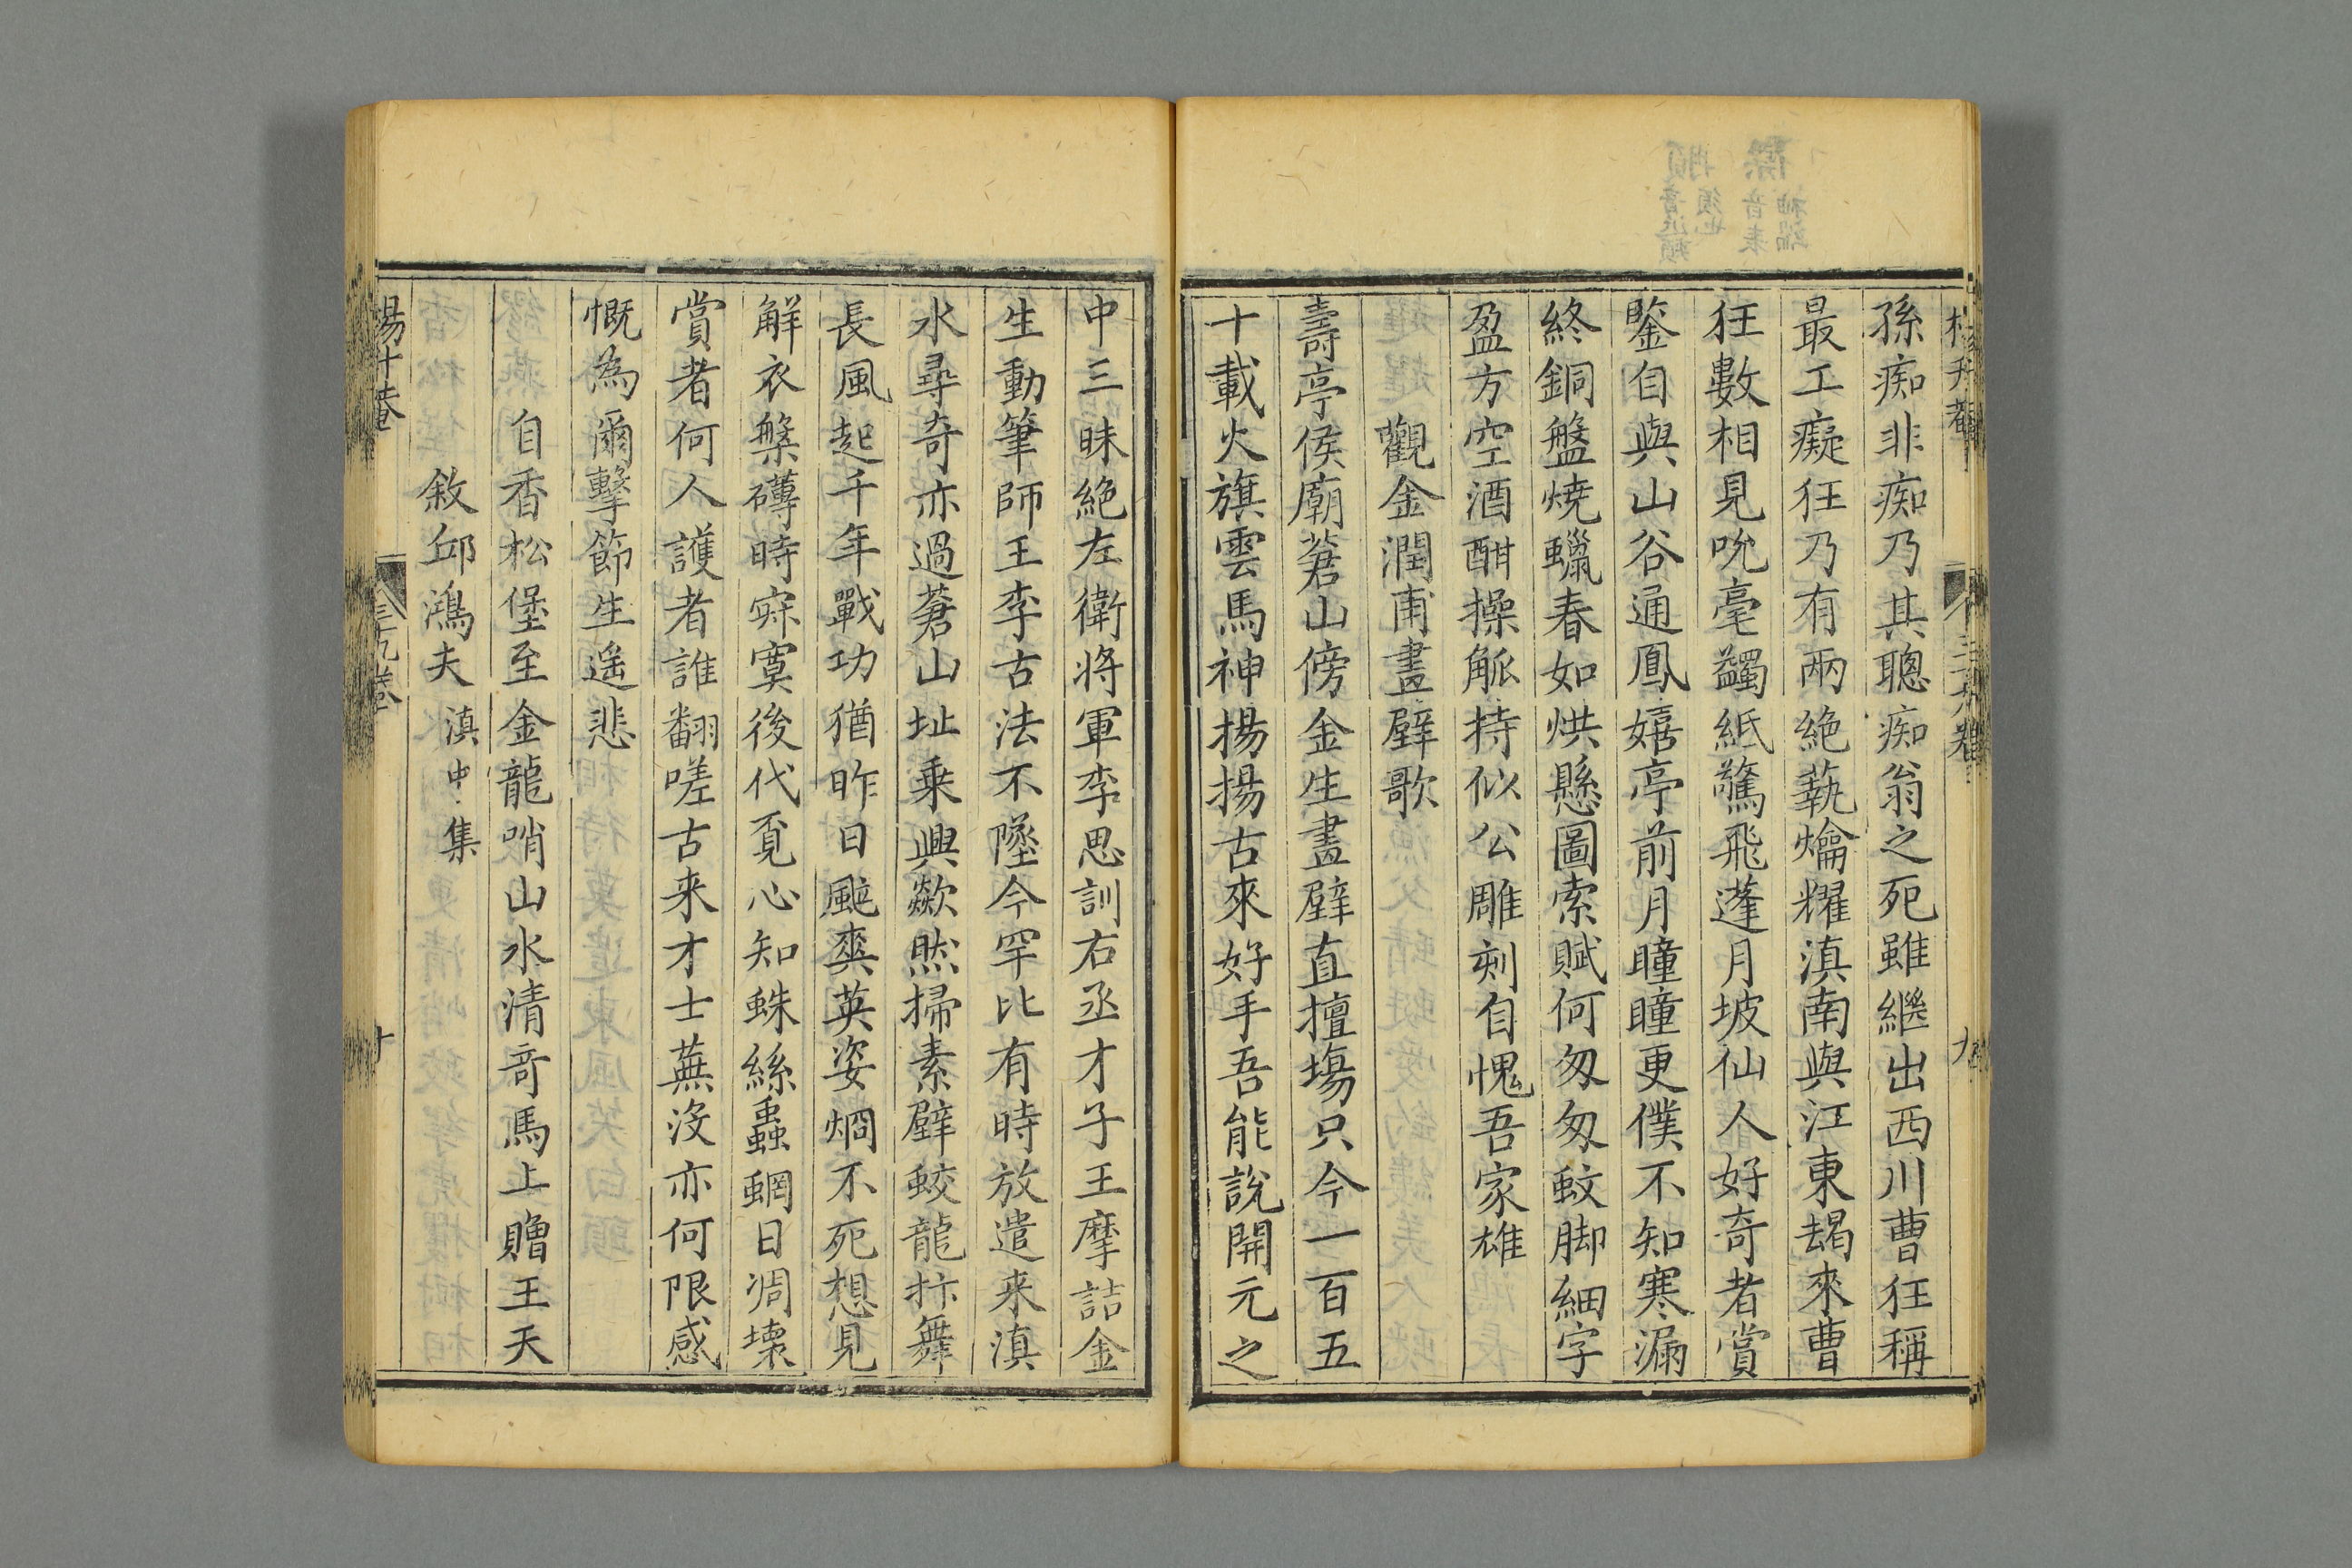 孫痴非痴乃其聰痴翁之死雖繼出西川曹狂稱
最工癡狂乃有兩絶蓺爚耀滇南與江東朅來曹
狂數相見吮毫蠲紙驚飛蓬月坡仙人好奇者賞
鑒自與山谷通鳳嬉亭前月曈曈更僕不知寒漏
終銅盤燒蠟春如烘懸圖索賦何匆匆蚊脚細字
盈方空酒酣操觚持似公雕刻自愧吾家雄
觀金潤甫畫壁歌
壽亭侯廟蒼山傍金生畫壁直擅塲只今一百五
十載火旗雲馬神揚揚古來好手吾能說開元之
中三昧絶左衛將軍李思訓右丞才子王摩詰金
生動筆師王李古法不墜今罕比有時放遣来滇
水尋奇亦過蒼山址乗興歘然掃素壁蛟龍抃舞
長風起千年戰功猶昨日颯爽英姿烱不死想見
解衣槃礴時㝥寞後代覔心知蛛絲蟲網日凋壊
賞者何人護者誰翻嗟古来才士蕪沒亦何限感
慨為爾擊節生遥悲
自香松堡至金龍哨山水清奇馬上贈王天
敘邱鴻夫 滇中集